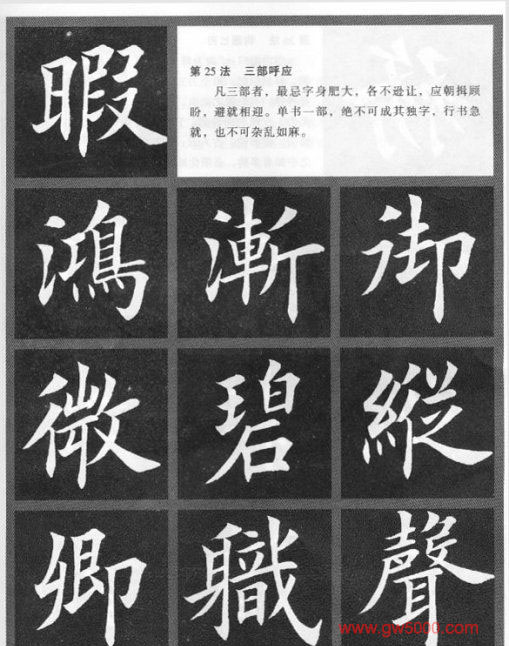 暇
第25法 三部呼应
凡三部者，最忌字身肥大，各不逊让，应朝揖顾
盼，避就相迎。单书一部，绝不可成其独字，行书急
就，也不可杂乱如麻。
鴻 漸 御
微 碧 縱
卿 職 聲
www.gw5000.com